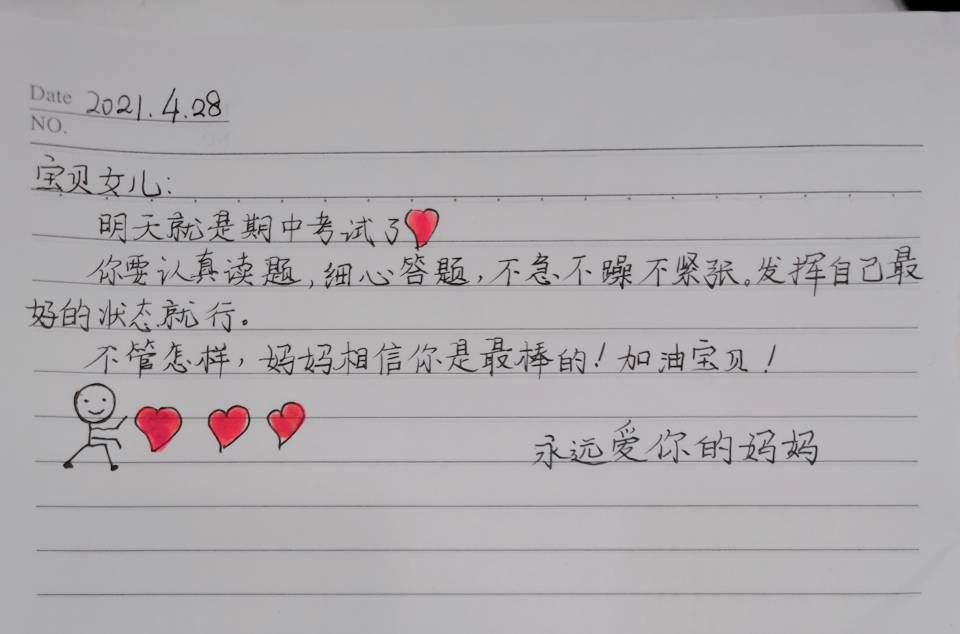 Date 2021.4.28
NO.
宝贝女儿:
明天就是期中考试了
你要认真读题,细心答题,不急不躁不紧张。发挥自己最
好的状态就行。
不管怎样,妈妈相信你是最棒的!加油宝贝!
永远爱你的妈妈